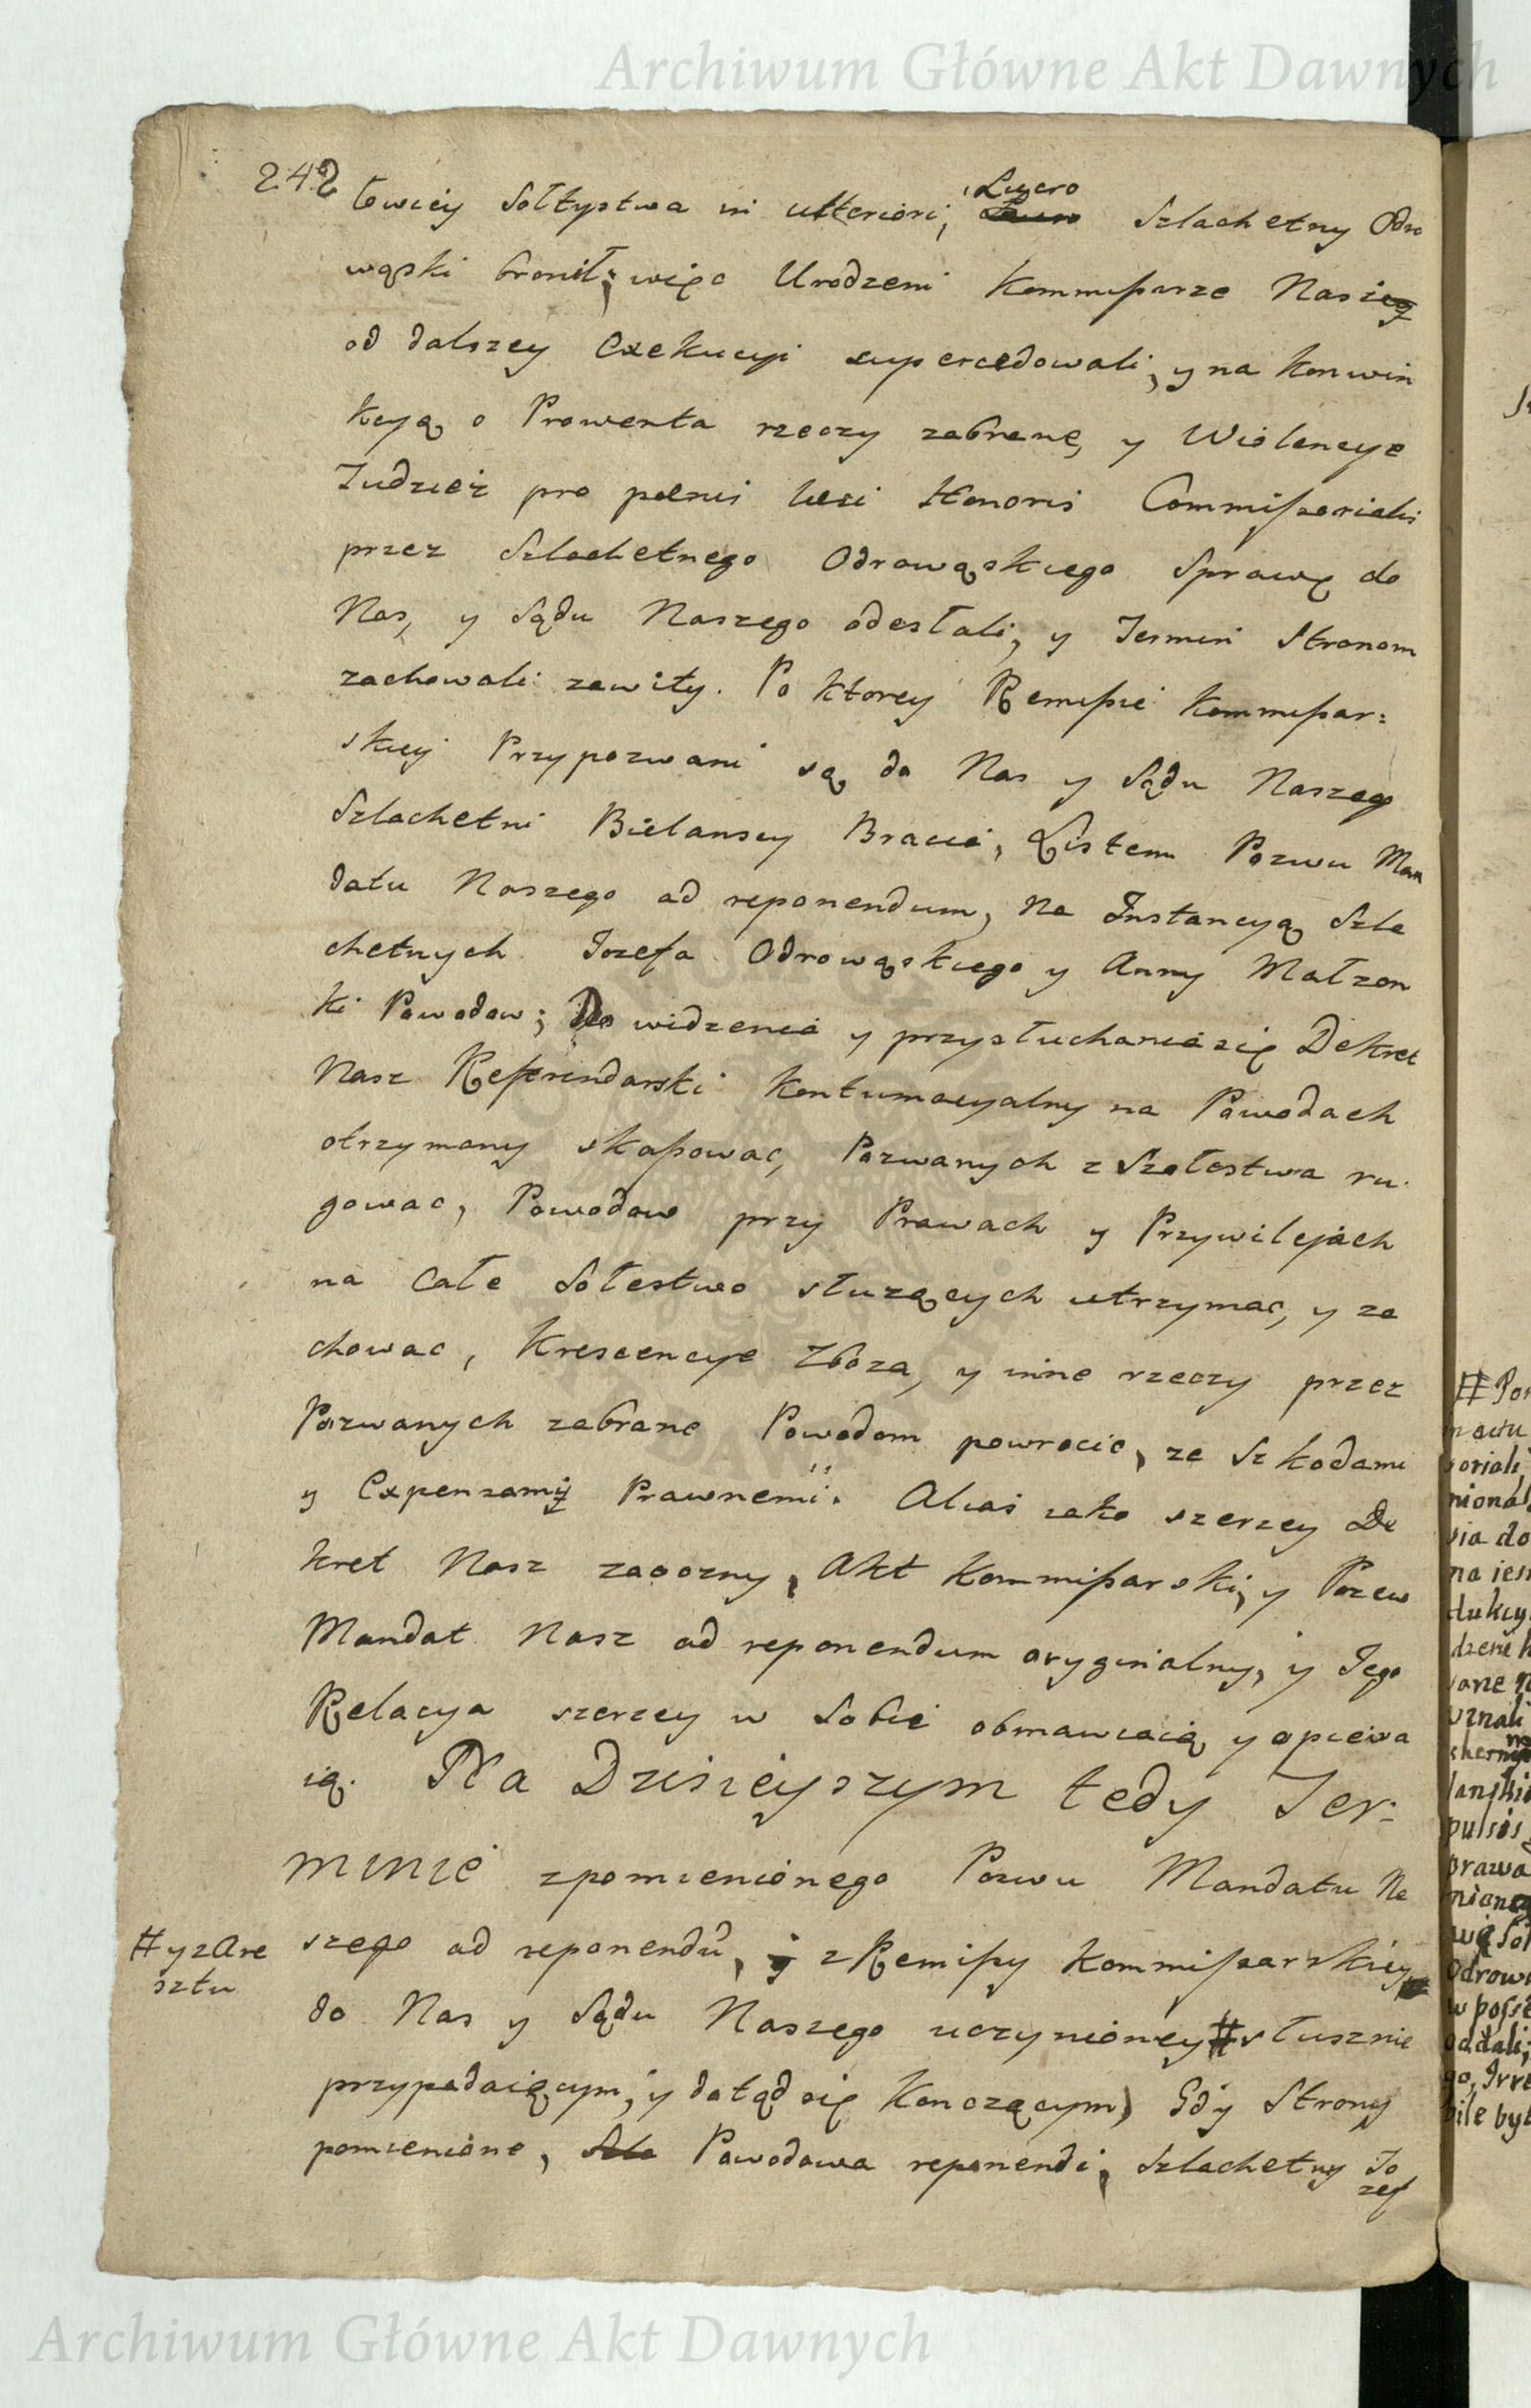 Archiwum Główne Akt Dawnych
242
łowicy Sołtystwa in ulteriori, Lucro Szlachetny Odro
wąski bronił; więc Urodzeni Kommissarze Nasi
od dalszey Exekucyi supercedowali, y na Konwin
kcyą o Prowenta rzeczy zabrane, y Wiolencye
Tudzież pro poenis lesi Honoris Commissorialis
przez Szlachetnego Odrowąskiego Sprawę do
Nas, y Sądu Naszego odesłali, y Termin Stronom
zachowali zawity. Po ktorey Remissie Kommissar:
skiey Przypozwani są do Nas y Sądu Naszego
Szlachetni Bielanscy Bracia, Listem Pozwu Man
datu Naszego ad reponendum, Na Instancyą Szla
chetnych Jozefa Odrowąskiego y Anny Małzon
ki Powodow; Do widzenia y przysłuchania się Dekret
Nasz Referendarski Kontumacyalny na Powodach
otrzymany skassować, Pozwanych z Szołestwa ru:
gowac, Powodow przy Prawach y Przywilejach
na Całe Sołestwo słuzących utrzymac, y za
chowac, Krescencye Zboza, y inne rzeczy przez
Pozwanych zabrane Powodom powrocic, ze Szkodami
y Expensamy Prawnemi. Alias jako szerzey De
kret Nasz zaoczny, Akt Kommissarski, y Pozew
Mandat Nasz ad reponendum oryginalny, y Jego
Relacya szerzey w Sobie obmawiaią y opiewa
ią. Na Dzisieyszym tedy Ter:
minie zpomienionego Pozwu Mandatu Na
szego ad reponendũ, z Remissy Kommissarskiey
#y z Are
sztu
do Nas y Sądu Naszego uczynioney # słusznie
przypadaiącym, y dotąd się Konczącym, Gdy Strony
pomienione, Powodowa reponendi, Szlachetny Jo
zef
# Po
sia do
na ies
dukcy
prawa
w poss
oddali;
Archiwum Główne Akt Dawnych